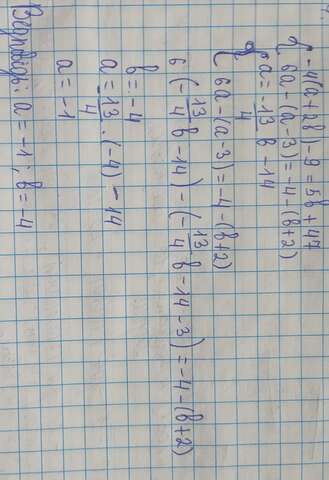 { -4a + 2b - 9 = 5b + 47
6a - (a - 3) = -4 - (b + 2)
{ a = -13/4 b - 14
6a - (a - 3) = -4 - (b + 2)
6 (-13/4 b - 14) - (-13/4 b - 14 - 3) = -4 - (b + 2)
b = -4
a = -13/4 · (-4) - 14
a = -1
Відповідь: a = -1; b = -4